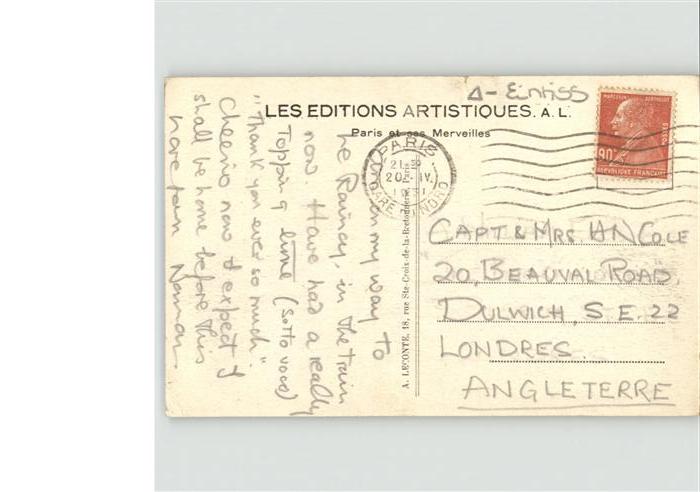 Δ - Entiss
LES EDITIONS ARTISTIQUES. A. L.
Paris et ses Merveilles
MARCELLIN BERTHELOT
POSTES
90c
REPUBLIQUE FRANCAISE
PARIS
21 30
20 - IV.
1931
GARE DU NORD
A. LECONTE, 18, rue Ste-Croix-de-la-Bretonnerie, Paris
On my way to
Le Raincy, in the train
now. Have had a really
Topping time (Sotto voce)
"Thank you ever so much".
Cheerio now & expect I
shall be home before this
Norman
CAPT & MRS. HN COLE
20, BEAUVAL ROAD,
DULWICH, S.E. 22
LONDRES.
ANGLETERRE